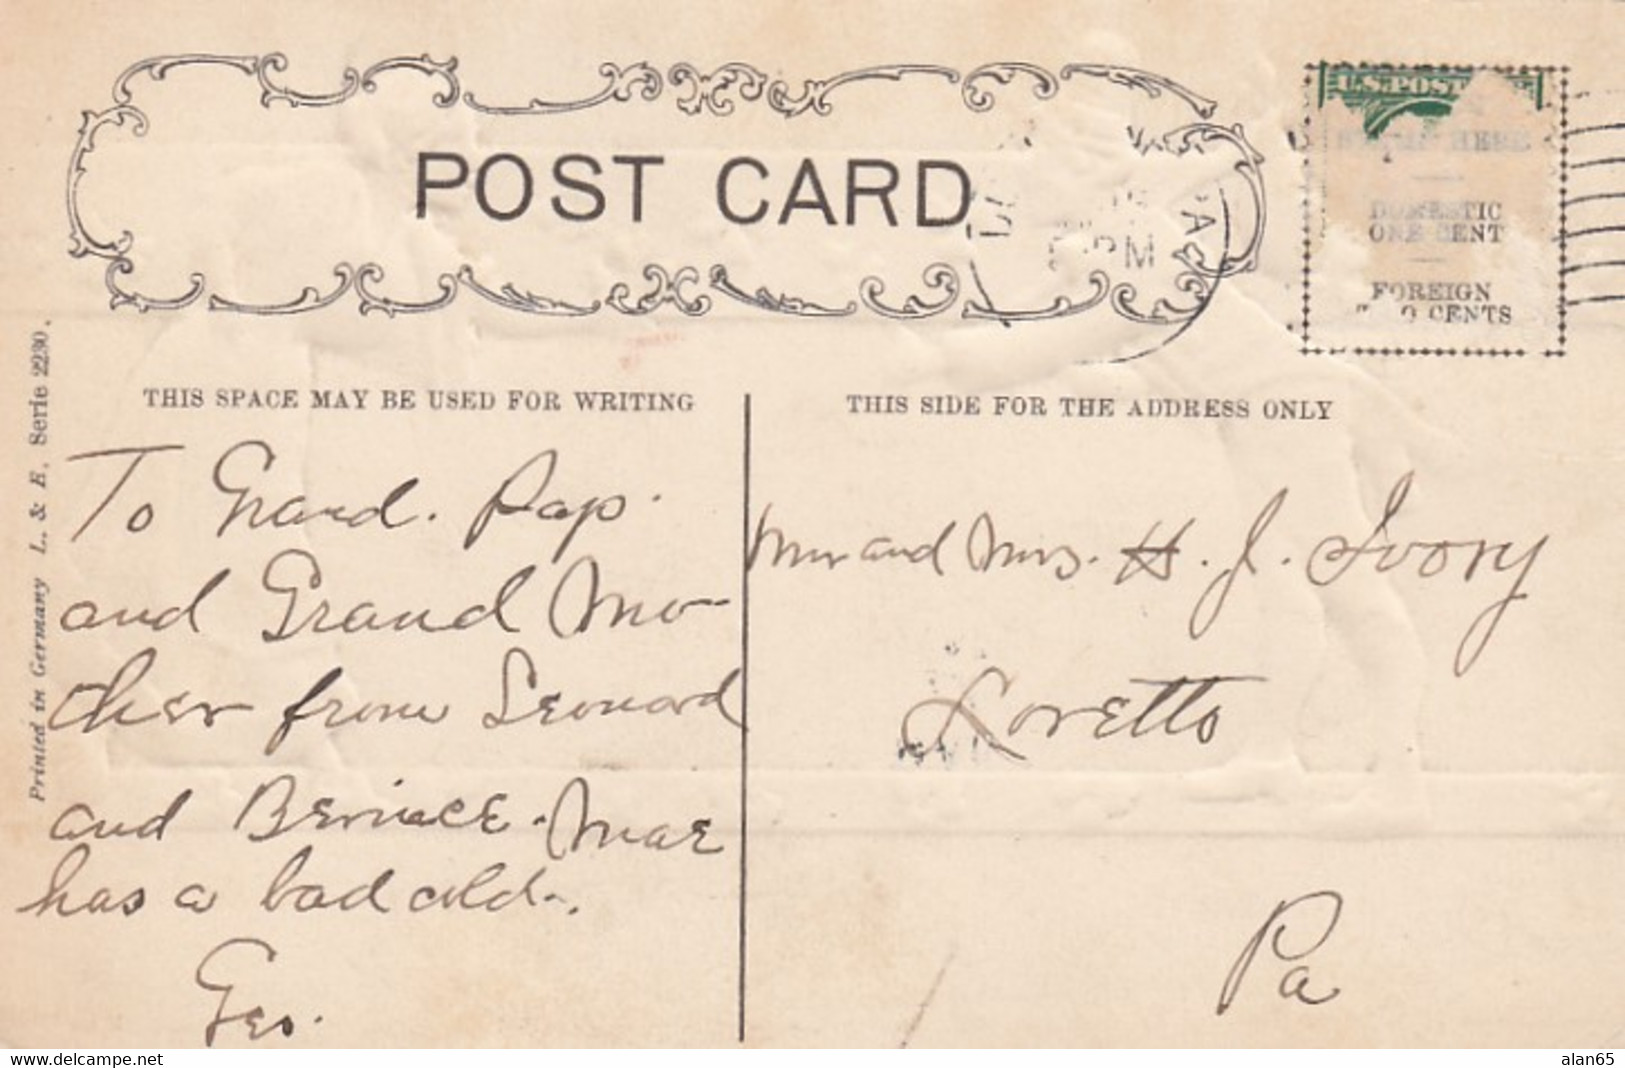 POST CARD
U.S. POST
HERE
DOMESTIC
ONE CENT
FOREIGN
CENTS
PA
PM
THIS SPACE MAY BE USED FOR WRITING
THIS SIDE FOR THE ADDRESS ONLY
Printed in Germany L. & E. Serie 2230.
To Grand. Pap.
and Grand Mo-
ther from Leonard
and Bernice. Mae
has a bad cold.
Geo.
Mr and Mrs. H. J. Ivory
Loretto
Pa
www.delcampe.net
alan65